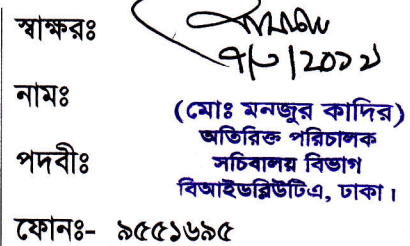 স্বাক্ষরঃ
নামঃ
(মোঃ মনজুর কাদির)
অতিরিক্ত পরিচালক
পদবীঃ
সচিবালয় বিভাগ
বিআইডব্লিউটিএ, ঢাকা।
ফোনঃ- ৯৫৫১৬৯৫